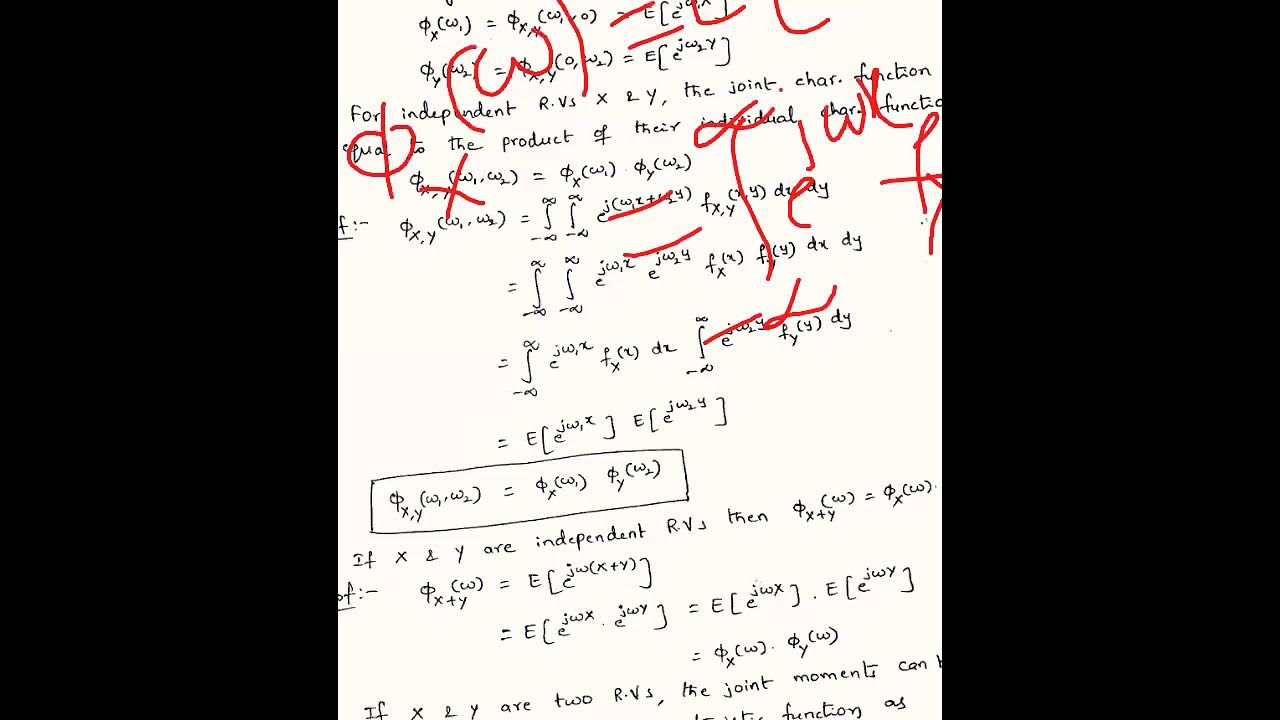 ϕ_X(ω₁) = ϕ_X,Y(ω₁, 0) = E[e^{jω₁X}]
ϕ_Y(ω₂) = ϕ_X,Y(0, ω₂) = E[e^{jω₂Y}]
For independent R.Vs X & Y, the joint char. function
equal to the product of their individual char. functio
ϕ_X,Y(ω₁, ω₂) = ϕ_X(ω₁) · ϕ_Y(ω₂)
f:- ϕ_X,Y(ω₁, ω₂) = ∫_{-∞}^{∞} ∫_{-∞}^{∞} e^{j(ω₁x+ω₂y)} f_X,Y(x,y) dx dy
= ∫_{-∞}^{∞} ∫_{-∞}^{∞} e^{jω₁x} e^{jω₂y} f_X(x) f_Y(y) dx dy
= ∫_{-∞}^{∞} e^{jω₁x} f_X(x) dx ∫_{-∞}^{∞} e^{jω₂y} f_Y(y) dy
= E[e^{jω₁x}] E[e^{jω₂y}]
ϕ_X,Y(ω₁, ω₂) = ϕ_X(ω₁) ϕ_Y(ω₂)
If X & Y are independent R.Vs then ϕ_X+Y(ω) = ϕ_X(ω).
of:- ϕ_X+Y(ω) = E[e^{jω(X+Y)}]
= E[e^{jωX} . e^{jωY}] = E[e^{jωX}] . E[e^{jωY}]
= ϕ_X(ω). ϕ_Y(ω)
If X & Y are two R.Vs, the joint moments can
function as
ϕ_X(ω)
e^{jωx}